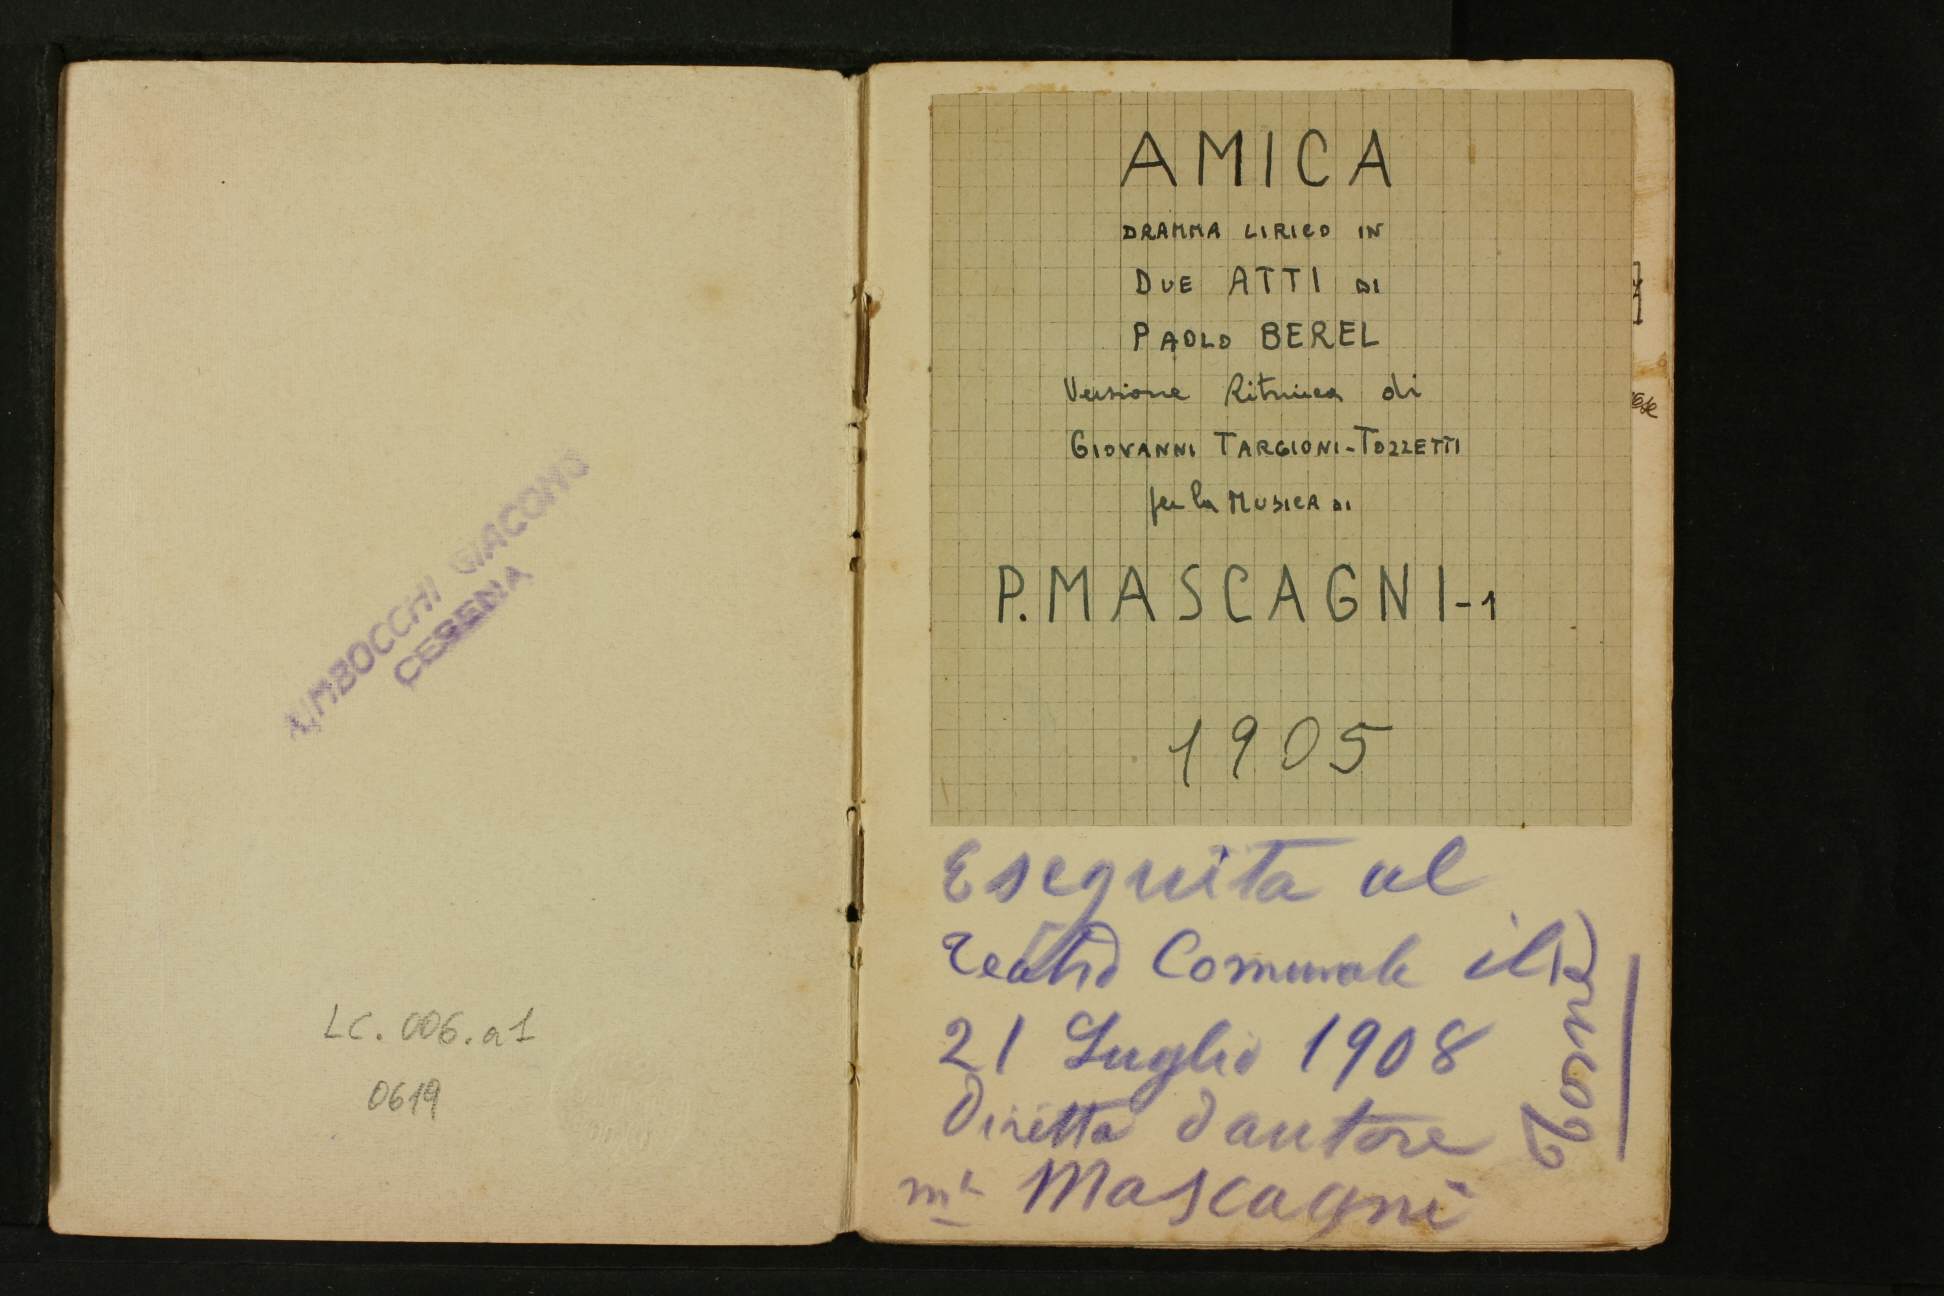 GIACOMO
CESENA
LC. 006. a1
0619
AMICA
DRAMMA LIRICO IN
DUE ATTI DI
PAOLO BEREL
Versione Ritmica di
GIOVANNI TARGIONI-TOZZETTI
per la MUSICA DI
P. MASCAGNI-1
1905
Eseguita al
Teatro Comunale il
21 Luglio 1908
Diretta d'autore
Mascagni